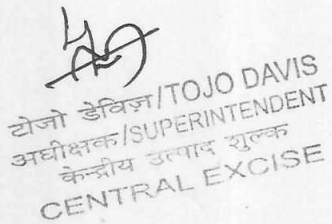 टोजो डेविज़/TOJO DAVIS
अधीक्षक/SUPERINTENDENT
केन्द्रीय उत्पाद शुल्क
CENTRAL EXCISE